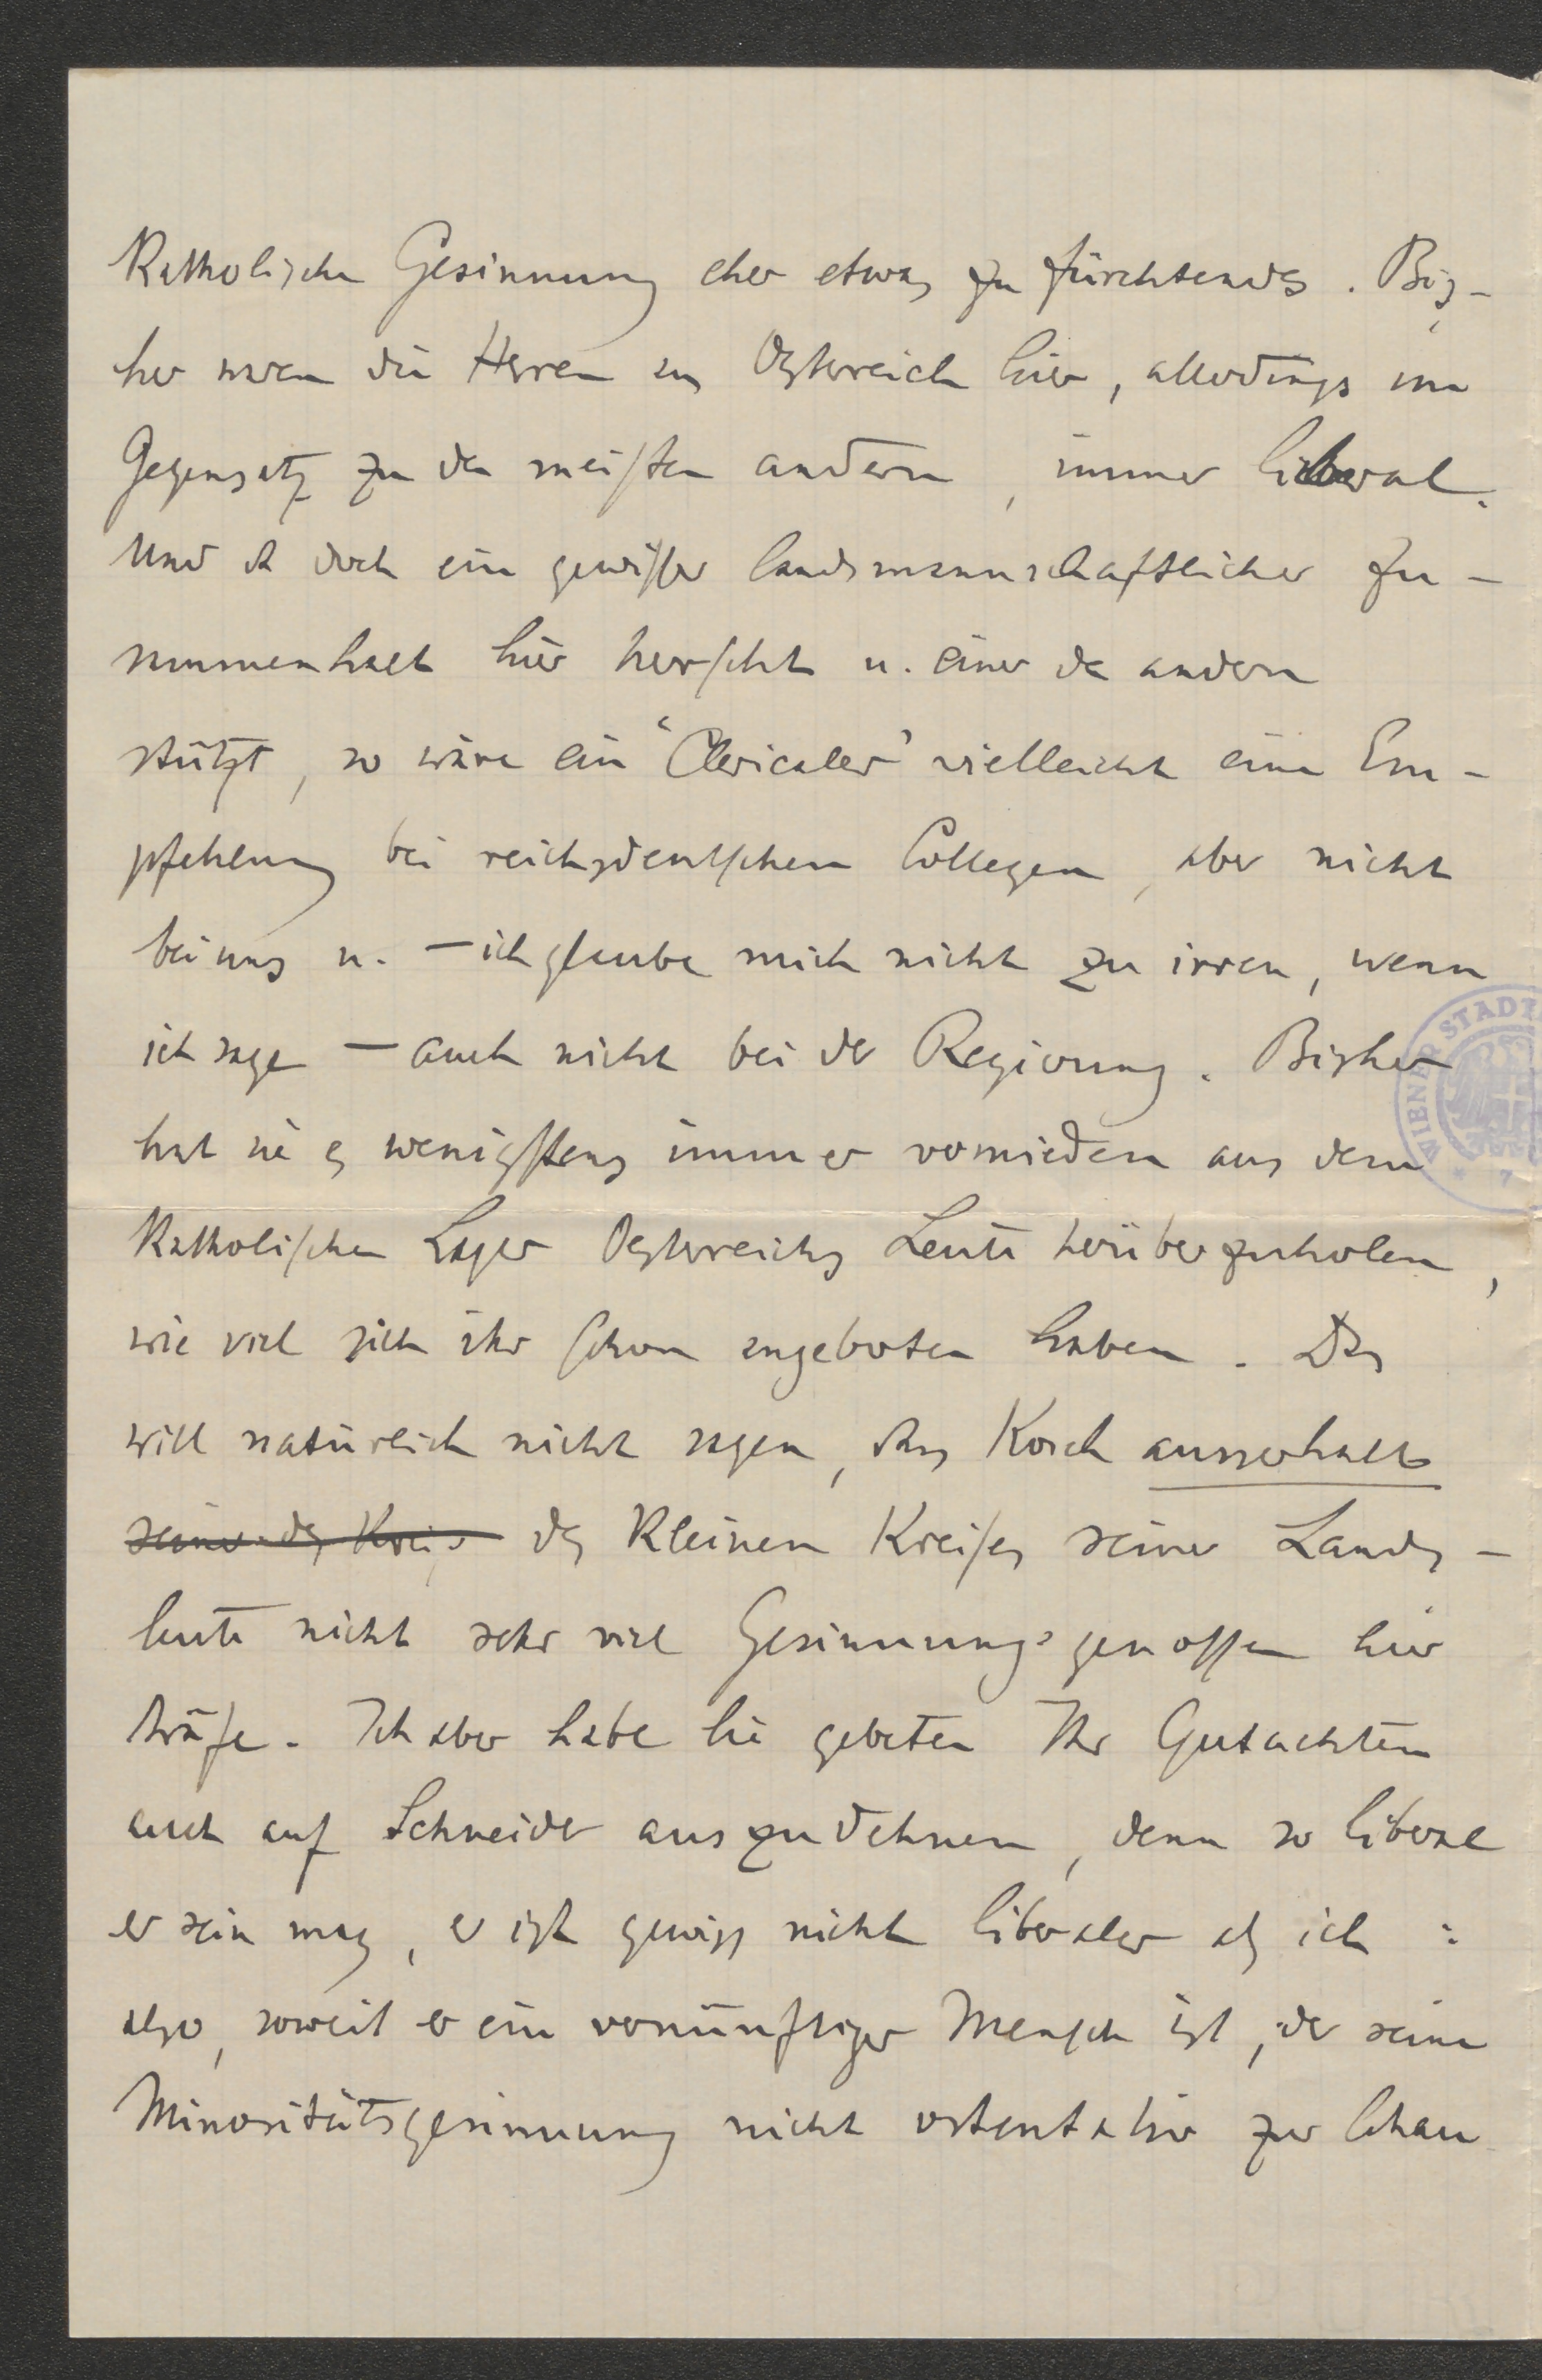 Katholische Gesinnung eher etwas zu fürchtendes. Bis-
her waren die Herren aus Österreich hier, allerdings im
Gegensatz zu den meisten andern, immer liberal.
Und da doch ein gewisser landsmannschaftlicher Zu-
sammenhalt hier herscht u. einer den andern
stützt, so wäre ein 'Clericaler' vielleicht eine Em-
pfehlung bei reichsdeutschen Collegen, aber nicht
bei uns u. – ich glaube mich nicht zu irren, wenn
ich sage – auch nicht bei der Regierung. Bisher
hat sie es wenigstens immer vermieden aus dem
Katholischen Lager Oesterreichs Leute herüberzuholen,
wie viel sich ihr schon angeboten haben. Das
will natürlich nicht sagen, dass Kosch ausserhalb
seiner des Kreises des kleinen Kreises seiner Lands-
leute nicht sehr viel Gesinnungsgenossen hier
träfe. Ich aber habe Sie gebeten Ihr Gutachten
auch auf Schneider auszudehnen, denn so liberal
er sein mag, er ist gewiss nicht liberaler als ich:
also, soweit er ein vernünftiger Mensch ist, der seine
Minoritätsgesinnung nicht ostentativ zur Schau
WIENER STADT
* 7